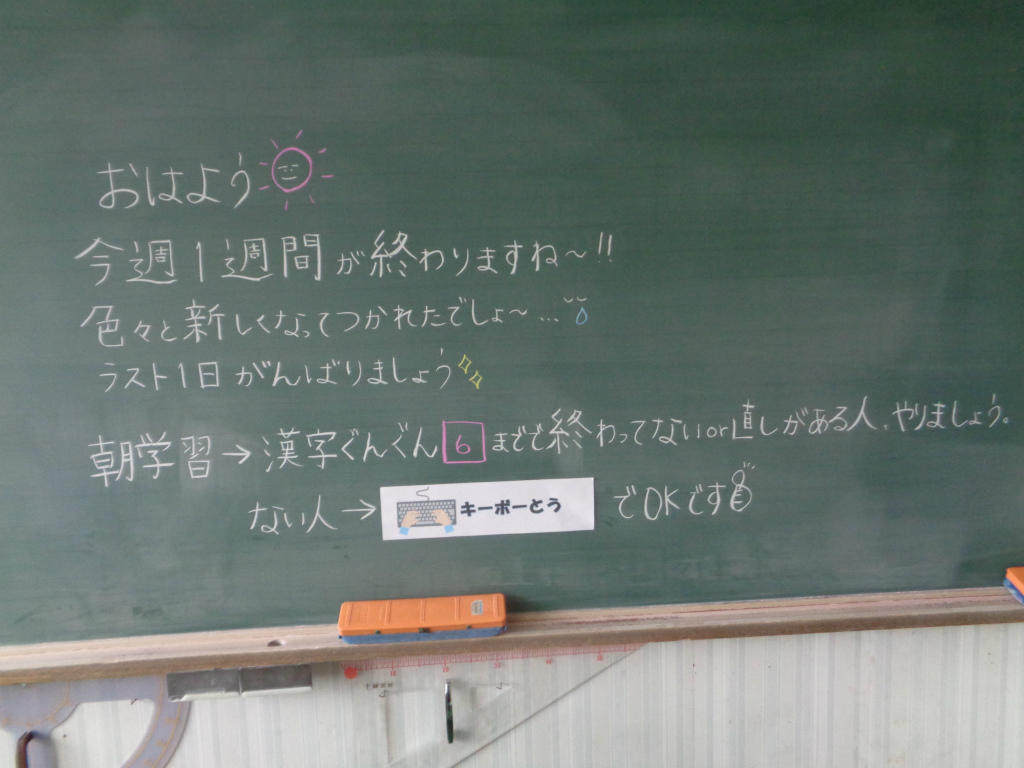 おはよう
今週1週間が終わりますね〜!!
色々と新しくなってつかれたでしょ〜…
ラスト1日がんばりましょう
朝学習→漢字ぐんぐん6までで終わってないor直しがある人、やりましょう。
ない人→キーボーとうでOKです